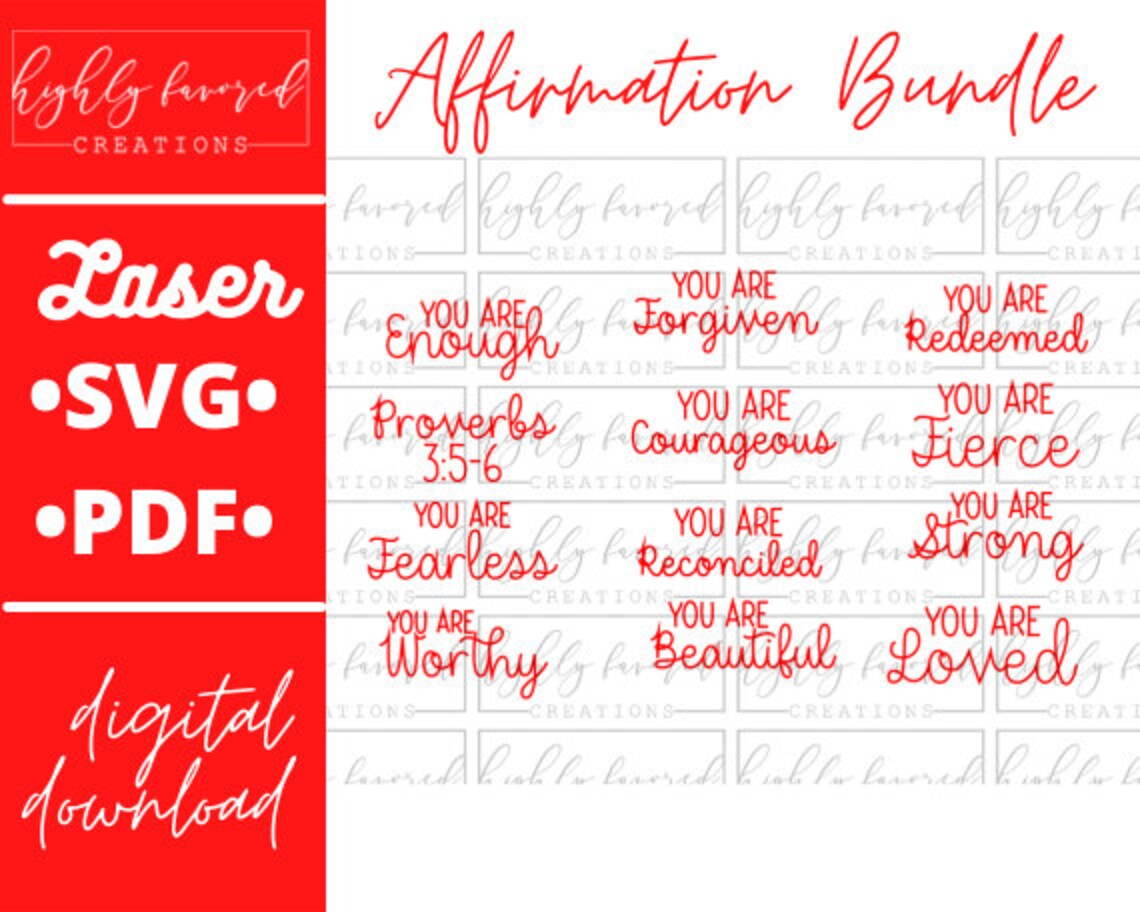 highly favored
CREATIONS
Laser
•SVG•
•PDF•
digital
download
Affirmation Bundle
favored highly favored highly favored highly f
ATIONS CREATIONS CREATIONS CREATI
YOU ARE
Enough
YOU ARE
Forgiven
YOU ARE
Redeemed
Proverbs
3:5-6
YOU ARE
Courageous
YOU ARE
Fierce
YOU ARE
Fearless
YOU ARE
Reconciled
YOU ARE
Strong
YOU ARE
Worthy
YOU ARE
Beautiful
YOU ARE
Loved